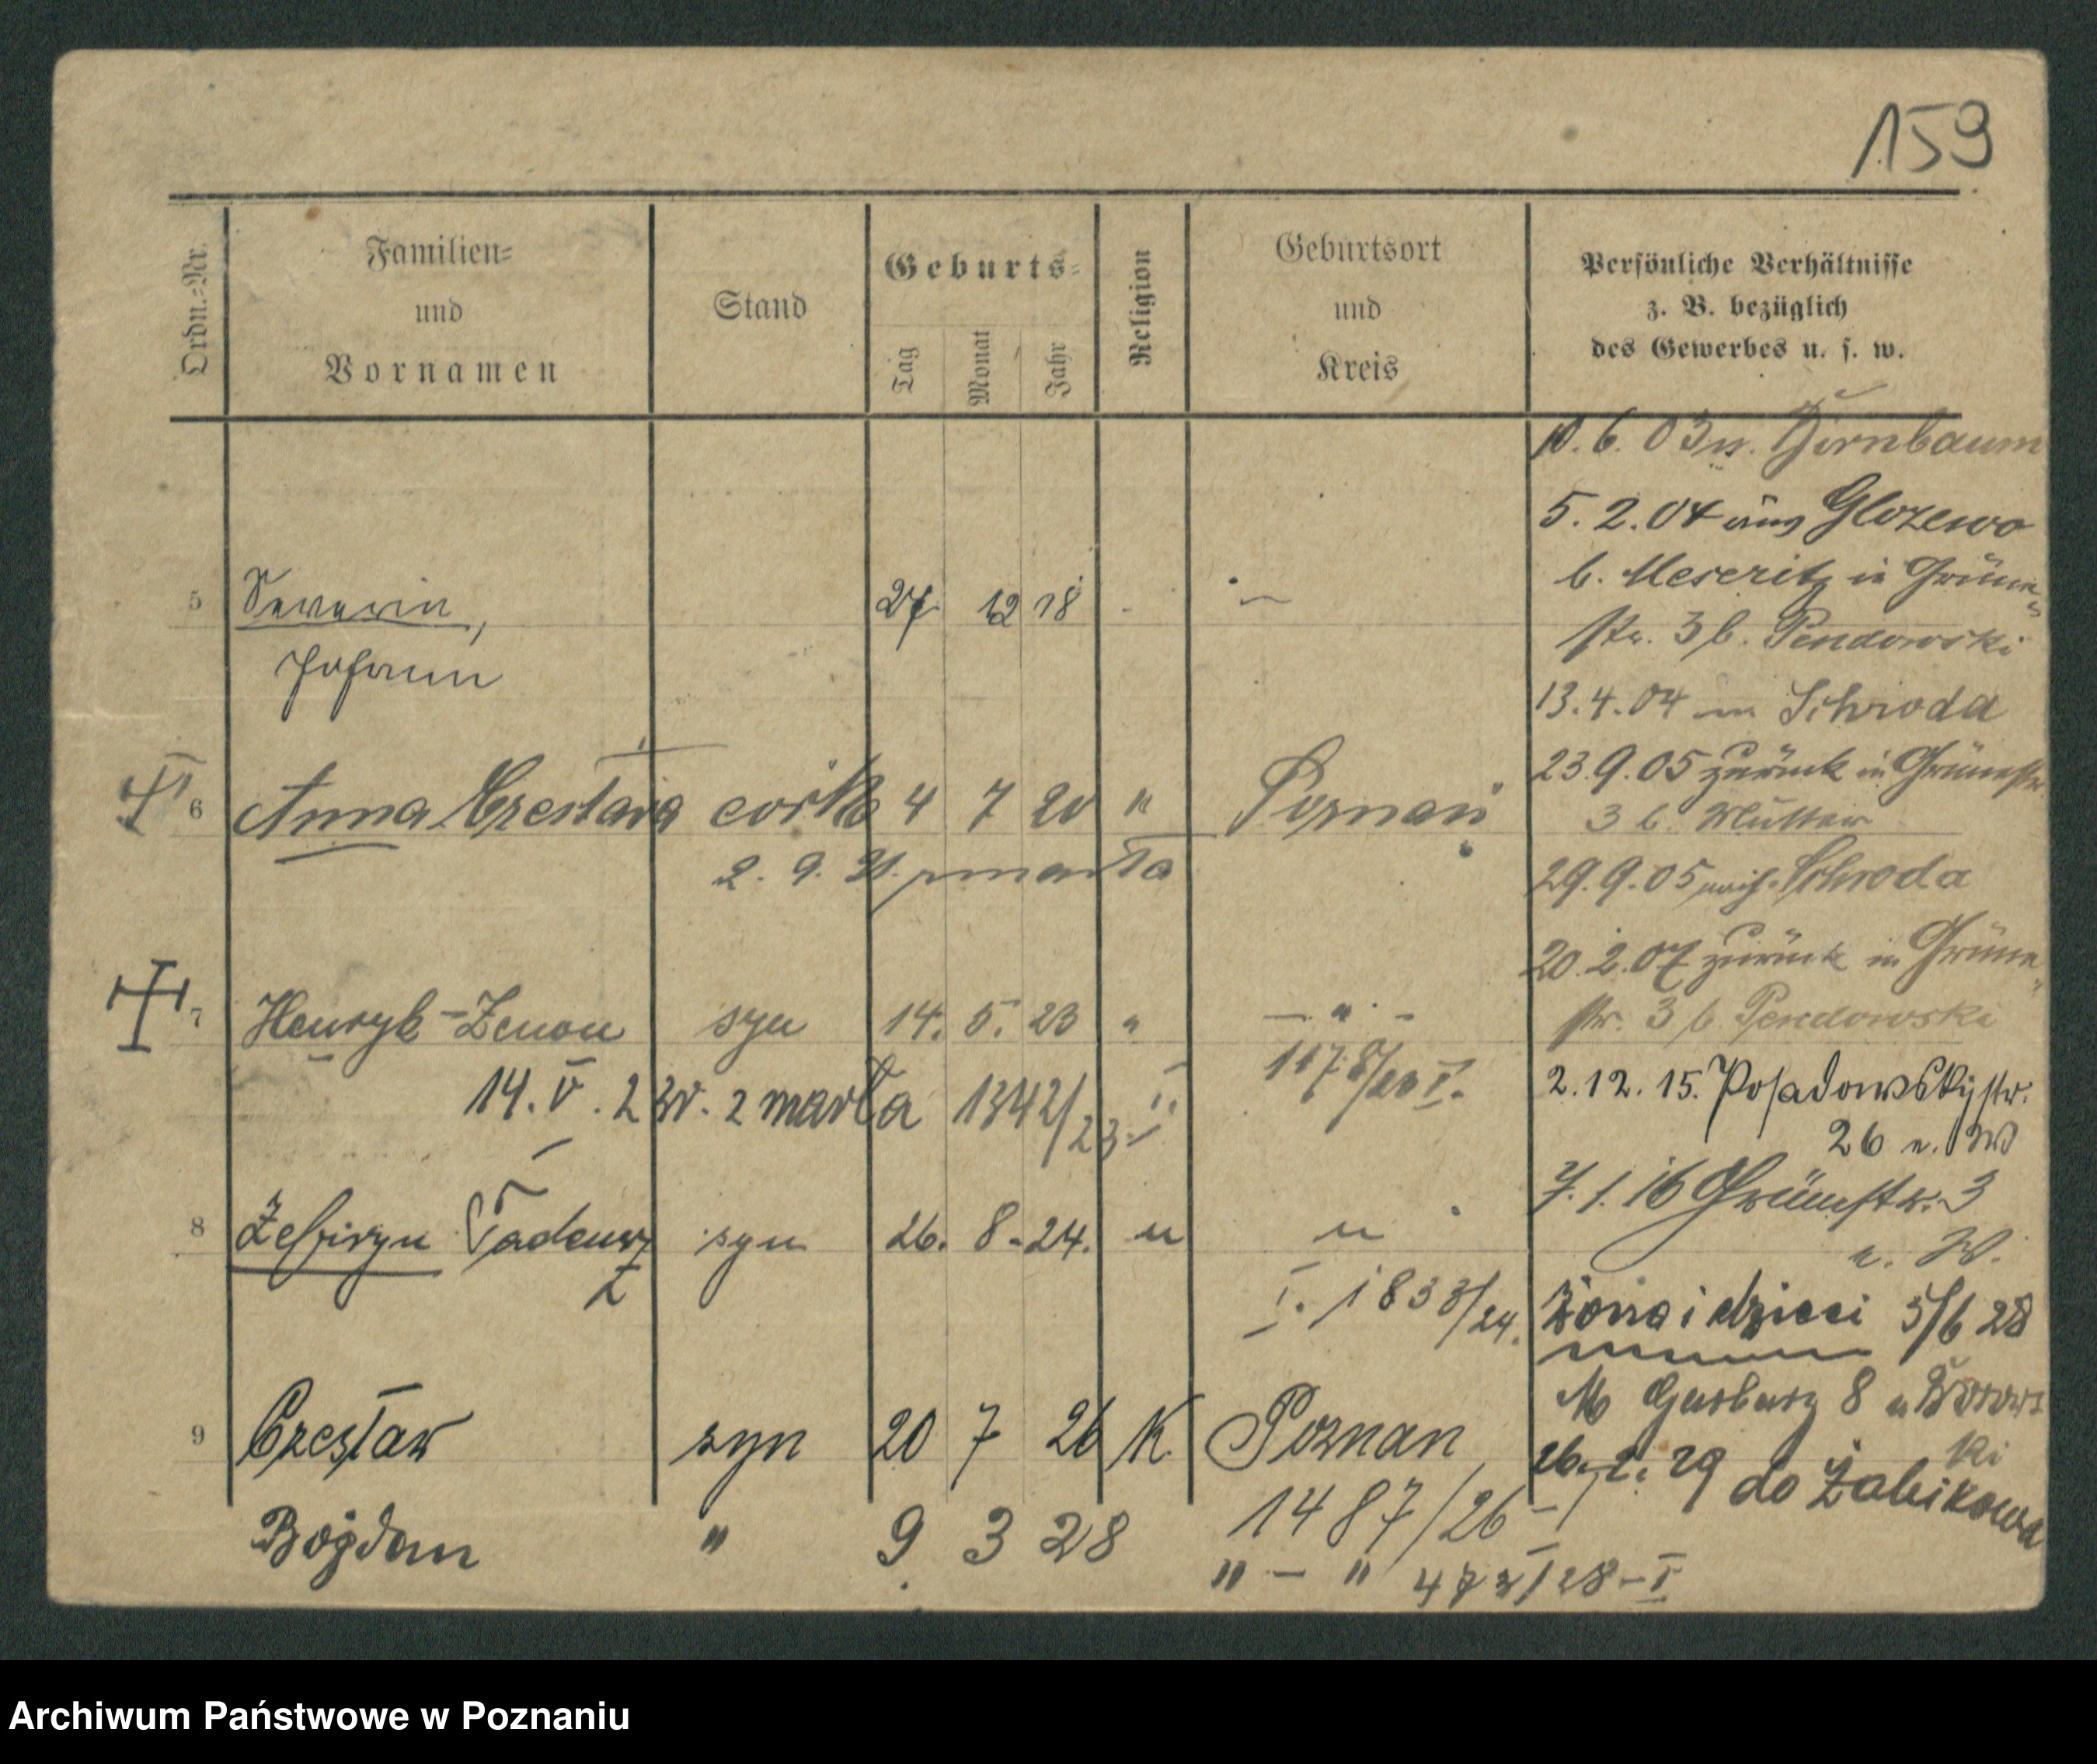 159
Ordn.=Nr.
Familien=
und
Vornamen
Stand
Geburts=
Tag
Monat
Jahr
Religion
Geburtsort
und
Kreis
Persönliche Verhältnisse
z. B. bezüglich
des Gewerbes u. s. w.
10.6.03 n. Birnbaum
5.2.04 aus Glozewo
b. Meseritz in Grüne
str. 3 b. Pendowski
13.4.04 Schroda
23.9.05 zurück in Grünestr.
3 b. Mutter
29.9.05 Schroda
20.2.07 zurück in Grüne
str. 3 b Pendowski
2.12.15. Posadowskystr.
26 n. W
7.1.16 Grünestr. 3
n. W.
Żona i dzieci 5/6 28
8
ki
26. 2. 29 do Żabikowa
5 Severin, 27 12 18 -
Johann
6 Anna Czesława córka 4 7 20 " Poznań
2. 9. zmarła
7 Henryk-Zenon syn 14. 5. 23 " - " -
14. V. 23 r. zmarła 1342/23 II.
8 Zefiryn Tadeusz syn 26. 8. 24. " "
I. 1833/24.
9 Czesław syn 20 7 26 K Poznan
1487/26 - I
Bogdan " 9 3 28 " - " /28 - I
Archiwum Państwowe w Poznaniu